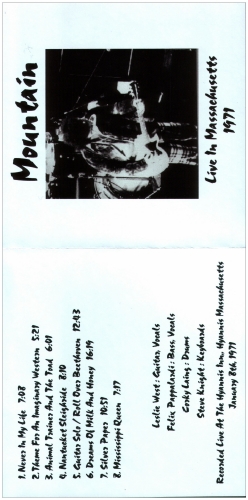 Mountain
Live In Massachusetts
1971
1. Never In My Life 7:08
2. Theme For An Imaginary Western 5:21
3. Animal Trainer And The Toad 6:01
4. Nantucket Sleighside 8:10
5. Guitar Solo / Roll Over Beethoven 12:43
6. Dreams Of Milk And Honey 16:19
7. Silver Paper 10:51
8. Mississippi Queen 7:17
Leslie West : Guitar, Vocals
Felix Pappalardi : Bass, Vocals
Corky Laing : Drums
Steve Knight : Keyboards
Recorded Live At The Hyannis Inn, Hyannis Massachusetts
January 8th, 1971